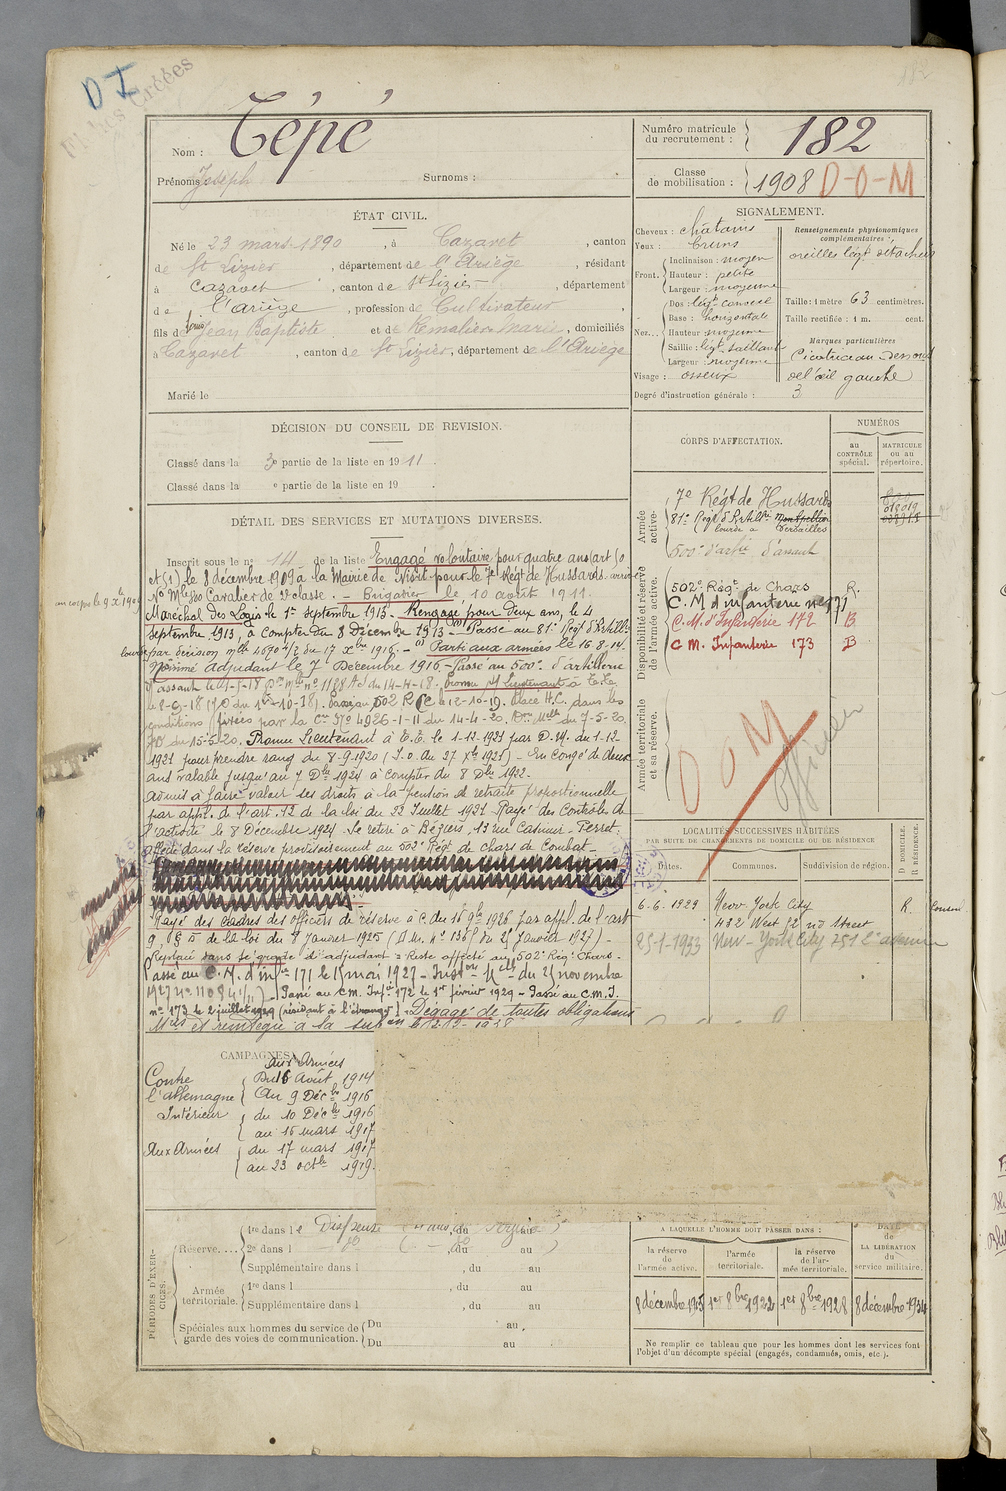 D I
Fiches Créées
182
Nom : Tépé
Prénoms : Joseph Surnoms :
Numéro matricule du recrutement : 182
Classe de mobilisation : 1908 D-O-M
ÉTAT CIVIL.
Né le 23 mars 1890, à Cazaret, canton
de St Lizier, département de l'Ariège, résidant
à Cazaret, canton de St Lizier, département
de l'Ariège, profession de Cultivateur,
fils de Jean Baptiste et de Marie, domiciliés
à Cazaret, canton de St Lizier, département de l'Ariège
Marié le
SIGNALEMENT.
Cheveux : châtains
Yeux : bruns
Front. Inclinaison : moyen
Hauteur : petite
Largeur : moyenne
Nez... Dos : légt convexe
Base : horizontale
Hauteur moyenne
Saillie : légt saillant
Largeur : moyenne
Visage : osseux
Renseignements physionomiques complémentaires :
oreilles légt détachées
Taille : 1 mètre 63 centimètres.
Taille rectifiée : 1 m. cent.
Marques particulières
Cicatrice au dessous
de l'œil gauche
Degré d'instruction générale : 3
DÉCISION DU CONSEIL DE REVISION.
Classé dans la 3e partie de la liste en 1911.
Classé dans la e partie de la liste en 19
DÉTAIL DES SERVICES ET MUTATIONS DIVERSES.
Inscrit sous le no 14 de la liste Engagé volontaire pour quatre ans (art 50
et 51) le 8 décembre 1909 à la Mairie de Niort pour le 7e Régt de Hussards. arrivé
au corps le 9 Xbre 1909
No Mle Cavalier de 2e classe. - Brigadier le 10 août 1911.
Maréchal des Logis le 1er septembre 1913. Rengagé pour Deux ans, le 4
Septembre 1913, à compter du 8 Décembre 1913 - Passé au 81e Régt d'Artillie
lourde par décision mlle 1690 1/2 du 17 Xbre 1916. - Parti aux armées le 16.8.14.
Nommé adjudant le 7 Décembre 1916 - Passé au 500e d'artillerie
d'assaut
le 8-9-18 Passé au 502 RCC le 12-10-19. Placé H.C. dans les
conditions fixées par la Cre No 4926-1-11 du 14-4-20. Don Mlle du 7-5-20.
JO du 15-5-20. Promu Lieutenant à T.T. le 1-12-1921 par D.M. du 1-12
1921 pour prendre rang du 8-9-1920 (J.O. du 27 Xbre 1921) - En congé de deux
ans valable jusqu'au 7 Dbre 1924 à compter du 8 Dbre 1922.
admis à faire valoir ses droits à la pension de retraite proportionnelle
par appl. de l'art. 12 de la loi du 22 Juillet 1921 - Rayé des Contrôles de
l'activité le 8 Décembre 1924. Se retire à Béziers, 13 rue Casimir-Perret.
affecté dans la réserve provisoirement au 502e Régt de chars de Combat -
Rayé des cadres des officiers de réserve à c du 16 9bre 1926 par appl. de l'art
9, § 5 de la loi du 8 Janvier 1925 (D.M. No du 25 Janvier 1927) -
Replacé dans le grade d'adjudant - Reste affecté au 502e Régt Chars -
Passé au C.M. d'infrie 171 le 15 mai 1927 - Instron Mlle du 25 novembre
1927 no 11084 1/11) - Passé au CM. Infrie 172 le 1er février 1929 - Passé au C.M.I.
no 173 le 2 juillet 1929 (résidant à l'étranger) - Dégagé de toutes obligations
CORPS D'AFFECTATION.
NUMÉROS
au CONTRÔLE spécial.
MATRICULE ou au répertoire.
Armée active.
7e Régt de Hussards
81e Régt d'Artillie Montpellier
lourde à Versailles
500e d'artie d'assaut
Disponibilité et réserve de l'armée active.
502e Régt de Chars R.
C.M d'infanterie no 171
C.M. d'Infanterie 172 B
C M. Infanterie 173 B
Armée territoriale et sa réserve.
D O M
officier
LOCALITÉS SUCCESSIVES HABITÉES
PAR SUITE DE CHANGEMENTS DE DOMICILE OU DE RÉSIDENCE
Dates. Communes. Subdivision de région. D DOMICILE. R RÉSIDENCE.
6-6-1929 New-York City R. Consul
432 West 52 nd Street
25-1-1933 New-York City 751 2e avenue
CAMPAGNES.
Contre l'allemagne
Aux Armées
Du 16 Août 1914
Au 9 Décbre 1916
Intérieur
du 10 Décbre 1916
au 16 mars 1917
Aux Armées
du 17 mars 1917
au 23 octbre 1919.
PÉRIODES D'EXERCICES.
Réserve.... 1re dans le Dispensé, du au
2e dans l do, du au
Supplémentaire dans l, du au
Armée territoriale. 1re dans l, du au
Supplémentaire dans l, du au
Spéciales aux hommes du service de garde des voies de communication. Du au
Du au
A LAQUELLE L'HOMME DOIT PASSER DANS :
la réserve de l'armée active.
l'armée territoriale.
la réserve de l'armée territoriale.
DATE de LA LIBÉRATION du service militaire.
8 décembre 1913 1er 8bre 1922 1er 8bre 1928 8 décembre 1934
Ne remplir ce tableau que pour les hommes dont les services font
l'objet d'un décompte spécial (engagés, condamnés, omis, etc.).